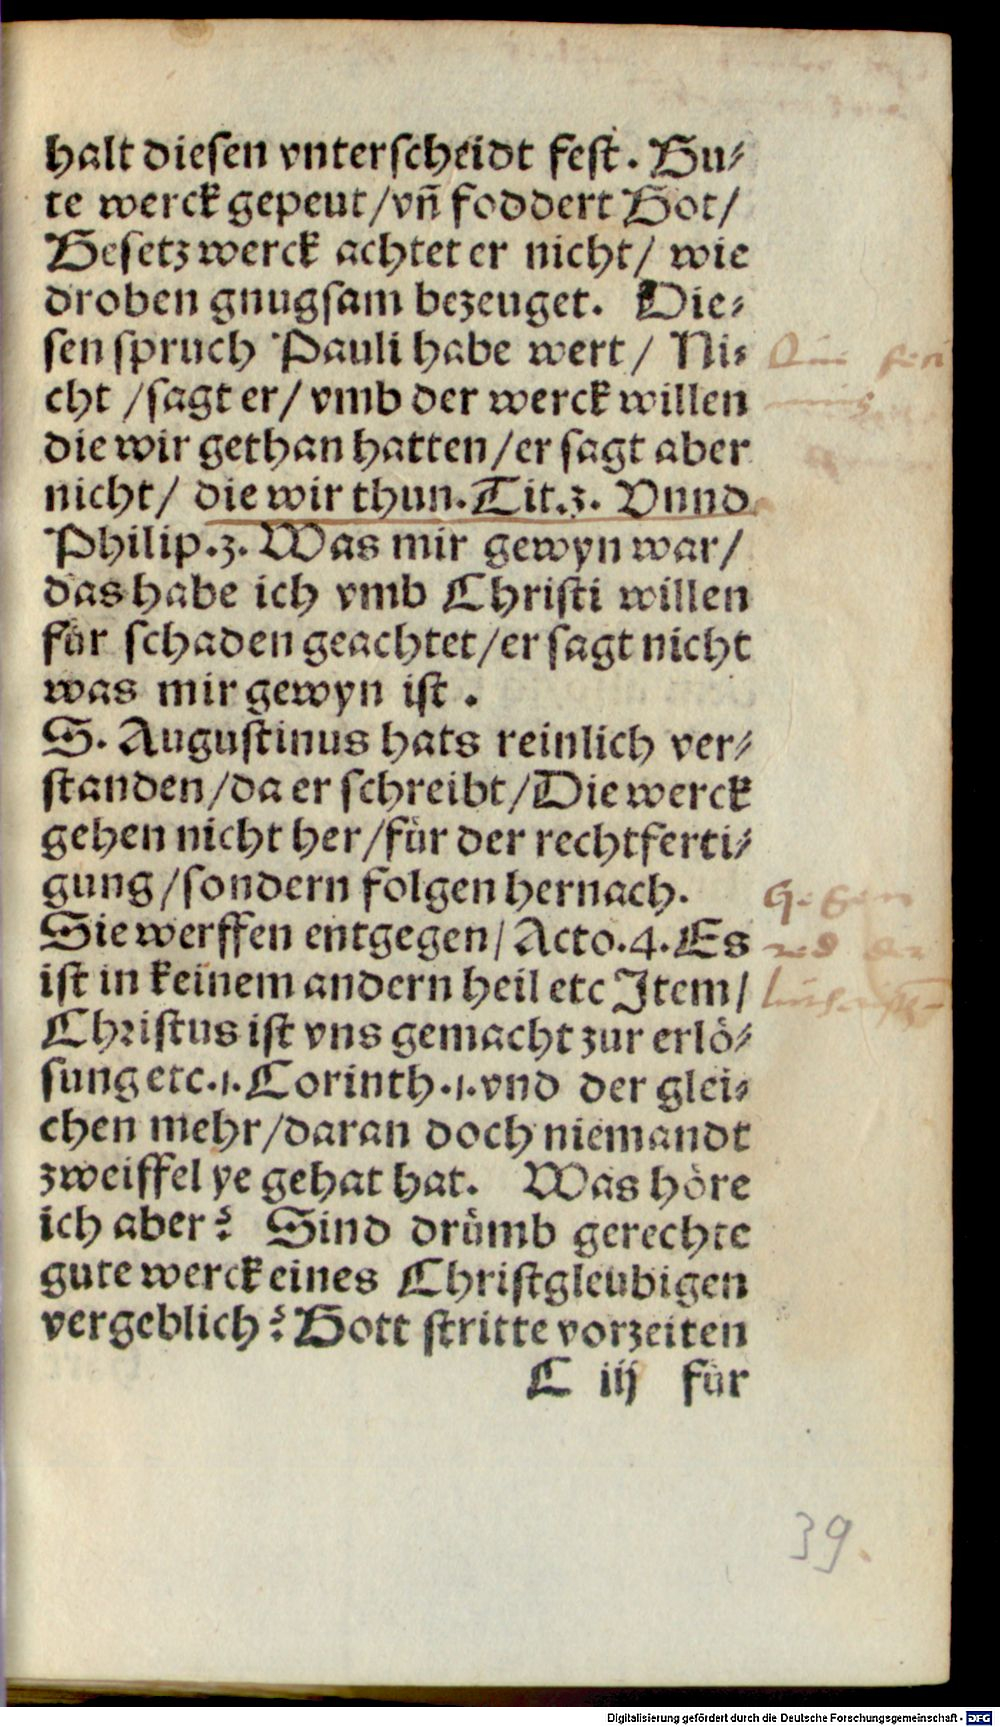 halt diesen vnterscheidt fest. Gu⸗
te werck gepeut/vñ foddert Got/
Gesetz werck achtet er nicht/ wie
droben gnugsam bezeuget. Die⸗
sen spruch Pauli habe wert/ Ni⸗
cht /sagt er/ vmb der werck willen
die wir gethan hatten/er sagt aber
nicht/ die wir thun. Tit.3. Vnnd
Philip.3. Was mir gewyn war/
das habe ich vmb Christi willen
für schaden geachtet/er sagt nicht
was mir gewyn ist .
S. Augustinus hats reinlich ver⸗
standen/da er schreibt/Die werck
gehen nicht her/für der rechtferti⸗
gung/sondern folgen hernach.
Sie werffen entgegen/ Acto.4. Es
ist in keinem andern heil etc Item/
Christus ist vns gemacht zur erlö⸗
sung etc.1. Corinth.1. vnd der glei⸗
chen mehr/daran doch niemandt
zweiffel ye gehat hat. Was höre
ich aber? Sind drümb gerechte
gute werck eines Christgleubigen
vergeblich? Gott stritte vorzeiten
C iij für
39.
Digitalisierung gefördert durch die Deutsche Forschungsgemeinschaft - DFG